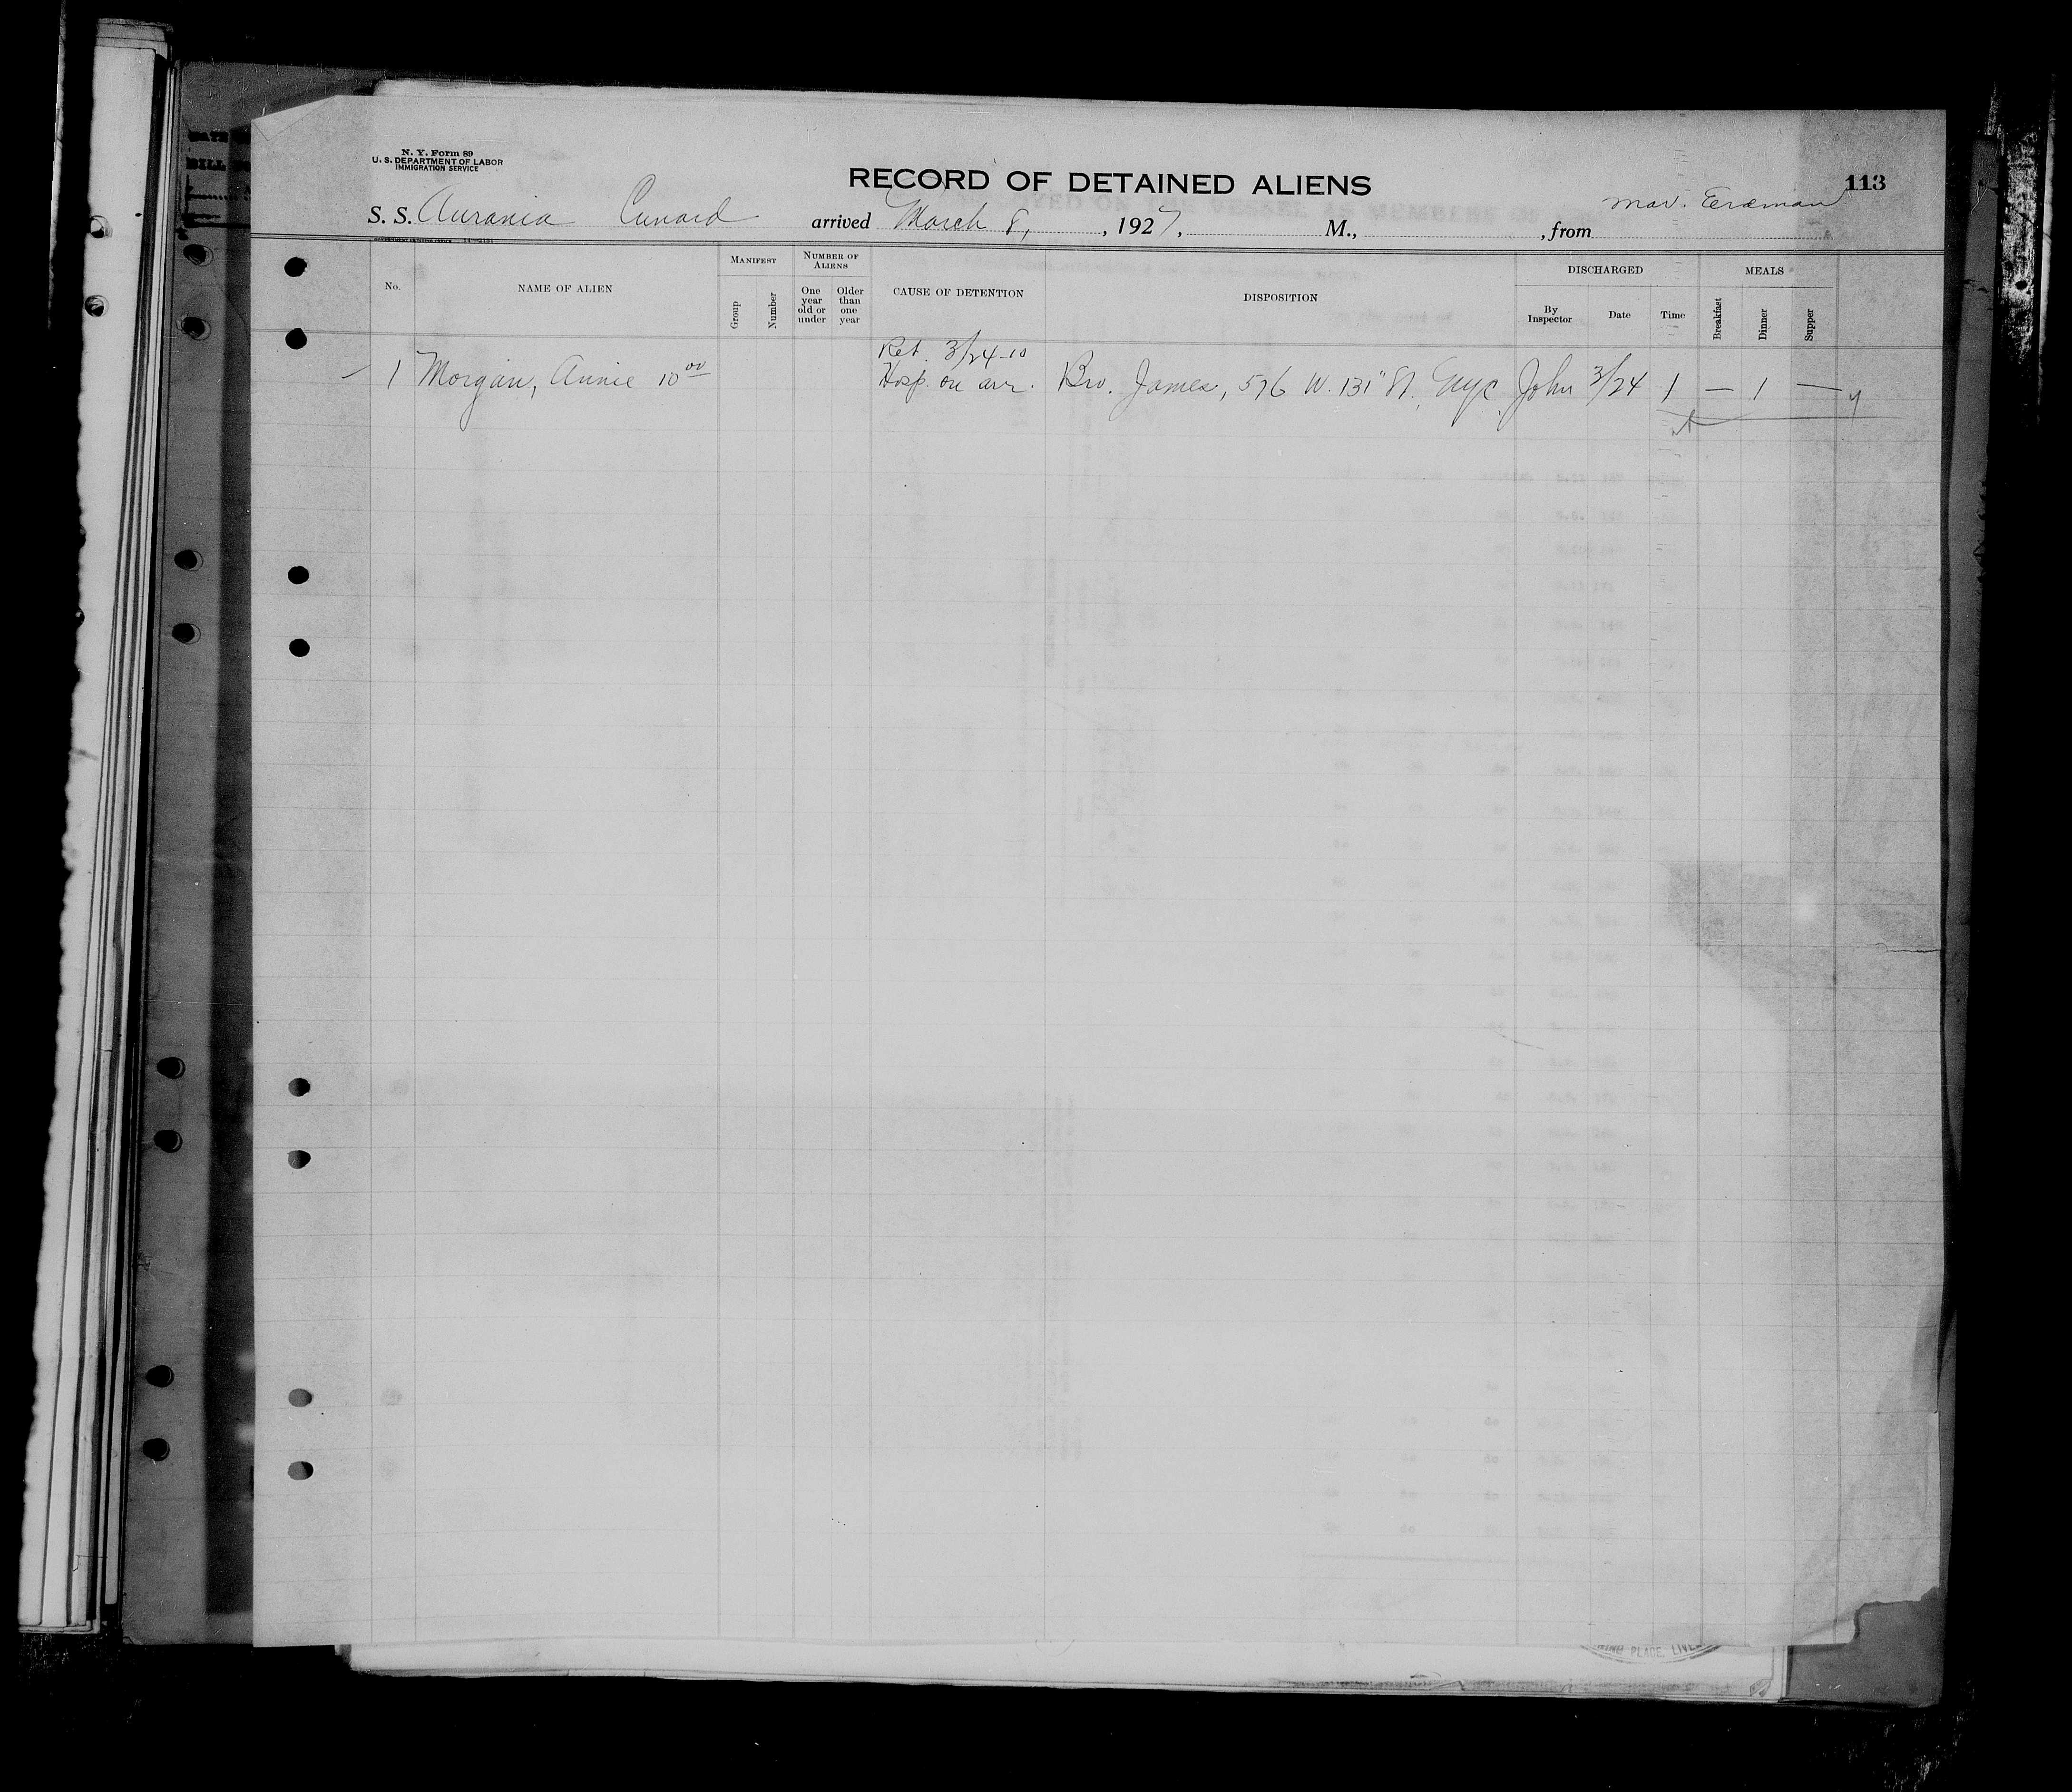 N. Y. Form 89
U. S. DEPARTMENT OF LABOR
IMMIGRATION SERVICE
RECORD OF DETAINED ALIENS
113
S. S. Aurania Cunard arrived March 8, , 1927, M., , from
GOVERNMENT PRINTING OFFICE
No. NAME OF ALIEN MANIFEST Group Number NUMBER OF ALIENS One year old or under Older than one year CAUSE OF DETENTION DISPOSITION DISCHARGED By Inspector Date Time MEALS Breakfast Dinner Supper
Ret. 3/24-10
1 Morgan, Annie 10 00 Hosp. on arr. Bro. James, 576 W. 131" St. NYC John 3/24 1 — 1 —
PLACE, LIVE